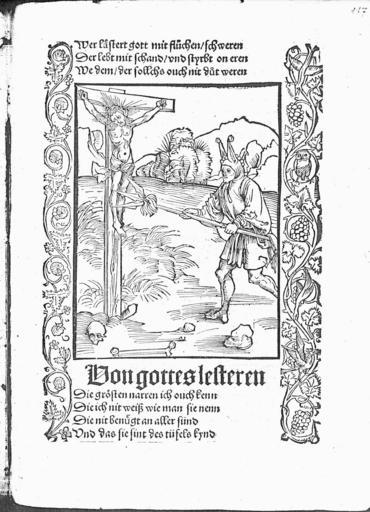 117
Wer lästert gott mit flůchen/schweren
Der lebt mit schand/vnd styrbt on eren
We dem/der sollchs ouch nit důt weren
Von gottes lesteren
Die grösten narren ich ouch kenn
Die ich nit weiß wie man sie nenn
Die nit benůgt an aller sünd
Vnd das sie sint des tüfels kynd